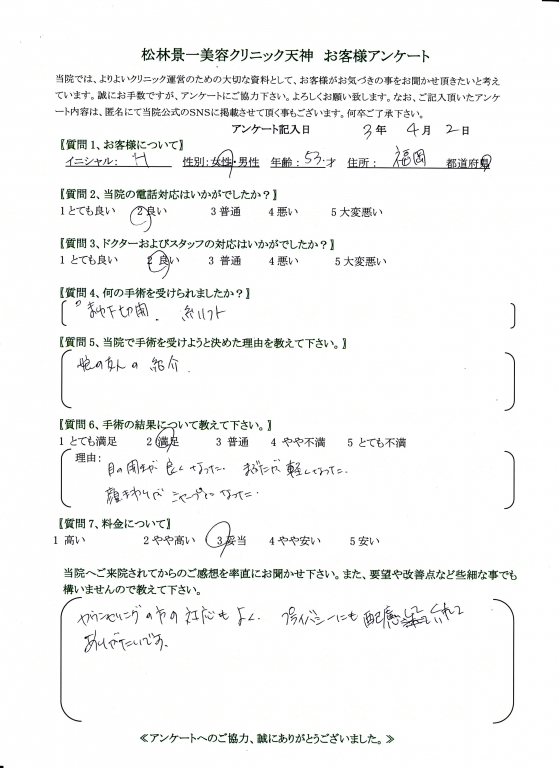 松林景一美容クリニック天神 お客様アンケート
当院では、よりよいクリニック運営のための大切な資料として、お客様がお気づきの事をお聞かせ頂きたいと考え
ています。誠にお手数ですが、アンケートにご協力下さい。よろしくお願い致します。なお、ご記入頂いたアンケ
ート内容は、匿名にて当院公式のSNSに掲載させて頂く事もございます。何卒ご了承下さい。
アンケート記入日 3年 4月 2日
【質問1、お客様について】
イニシャル: H 性別:女性・男性 年齢:53才 住所: 福岡 都道府県
【質問2、当院の電話対応はいかがでしたか?】
1とても良い 2良い 3普通 4悪い 5大変悪い
【質問3、ドクターおよびスタッフの対応はいかがでしたか?】
1とても良い 2良い 3普通 4悪い 5大変悪い
【質問4、何の手術を受けられましたか?】
まゆ下切開. 糸リフト
【質問5、当院で手術を受けようと決めた理由を教えて下さい。】
娘の友人の紹介.
【質問6、手術の結果について教えて下さい。】
1とても満足 2満足 3普通 4やや不満 5とても不満
理由:
目の開きが良くなった. まぶたが軽くなった.
顔まわりがシャープになった.
【質問7、料金について】
1高い 2やや高い 3妥当 4やや安い 5安い
当院へご来院されてからのご感想を率直にお聞かせ下さい。また、要望や改善点など些細な事でも
構いませんので教えて下さい。
カウンセリングの方の対応もよく. プライバシーにも配慮してくれて
ありがたいです.
≪アンケートへのご協力、誠にありがとうございました。≫